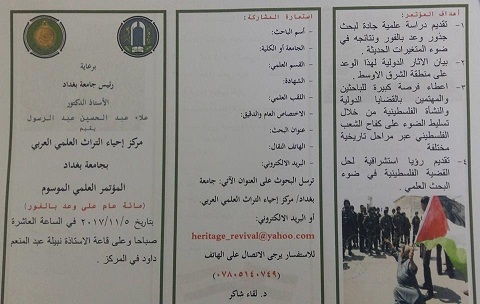 أهداف المؤتمر:
١- تقديم دراسة علمية جادة لبحث
جذور وعد بالفور ونتائجه في
ضوء المتغيرات الحديثة .
٢- بيان الآثار الدولية لهذا الوعد
على منطقة الشرق الأوسط .
٣- اعطاء فرصة كبيرة للباحثين
والمهتمين بالقضايا الدولية
والنشأة الفلسطينية من خلال
تسليط الضوء على كفاح الشعب
الفلسطيني عبر مراحل تاريخية
مختلفة
٤- تقديم رؤيا استشرافية لحل
القضية الفلسطينية في ضوء
البحث العلمي .
استمارة المشاركة:
- أسم الباحث:
- الجامعة أو الكلية:
- القسم العلمي:
- الشهادة:
- اللقب العلمي:
- الاختصاص العام والدقيق:
- عنوان البحث:
- الهاتف النقال:
- البريد الالكتروني:
ترسل البحوث على العنوان الآتي: جامعة
بغداد/ مركز إحياء التراث العلمي العربي.
أو البريد الالكتروني:
heritage_revival@yahoo.com
للاستفسار يرجى الاتصال على الهاتف
(٠٧٨٠٥١٤٠٧٤٩)
د. لقاء شاكر
برعاية
رئيس جامعة بغداد
الأستاذ الدكتور
علاء عبد الحسين عبد الرسول
يقيم
مركز إحياء التراث العلمي العربي
بجامعة بغداد
المؤتمر العلمي الموسوم
(مائة عام على وعد بالفور)
بتاريخ ٢٠١٧/١١/٥ في الساعة العاشرة
صباحا وعلى قاعة الاستاذة نبيلة عبد المنعم
داود في المركز .